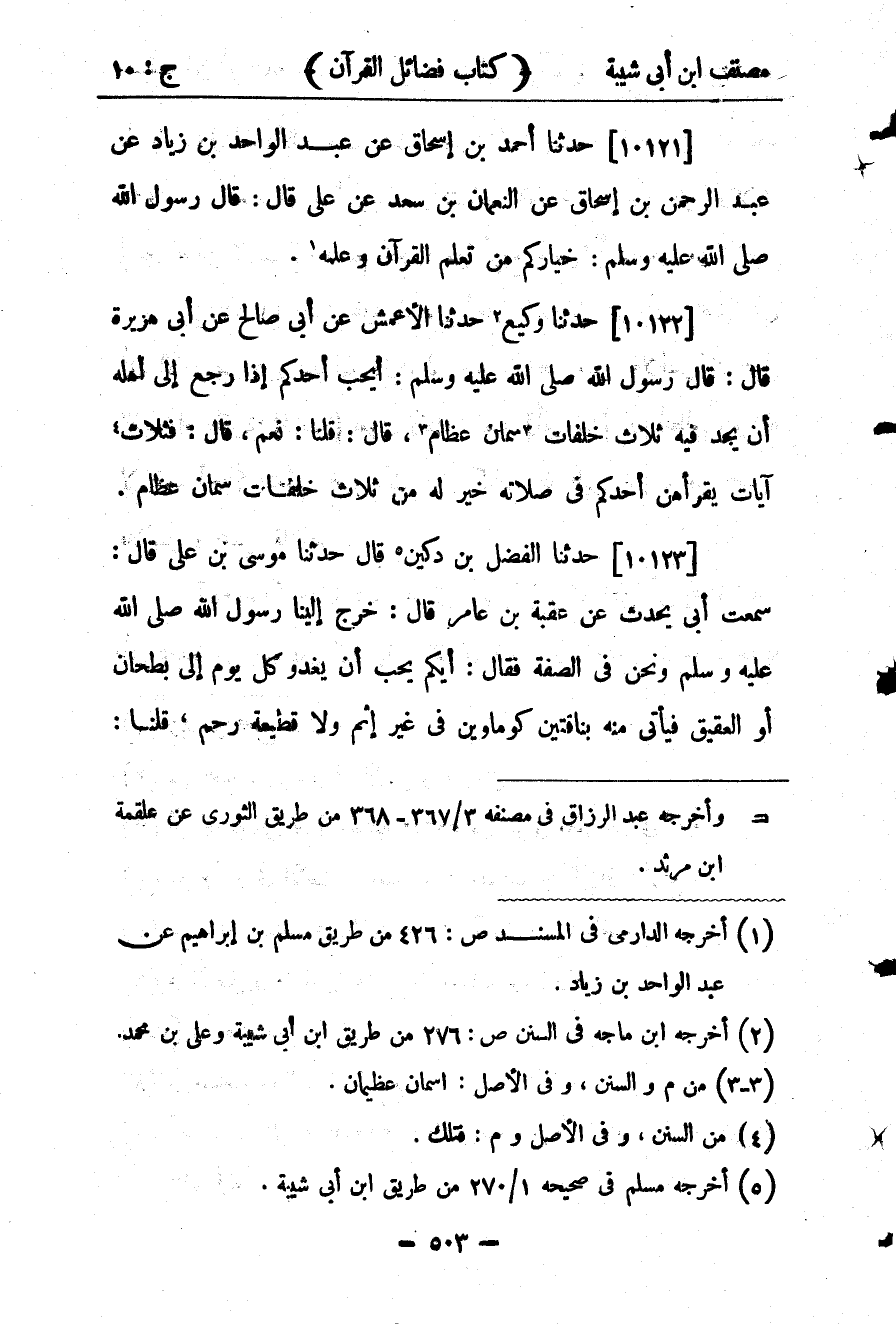 مصنف ابن أبى شيبة ﴿ كتاب فضائل القرآن ﴾ ج : ١٠
[١٠١٢١] حدثنا أحمد بن إسحاق عن عبـــد الواحد بن زياد عن
عبد الرحمن بن إسحاق عن النعمان بن سعد عن على قال : قال رسول الله
صلى الله عليه وسلم : خياركم من تعلم القرآن وعلمه١ .
[١٠١٣٢] حدثنا وكيع٢ حدثنا الأعمش عن أبى صالح عن أبى هريرة
قال : قال رسول الله صلى الله عليه وسلم : أيحب أحدكم إذا رجع إلى أهله
أن يجد فيه ثلاث خلفات ٣سمان عظام٣ ، قال : قلنا : نعم ، قال : فثلاث٤
آيات يقرأهن أحدكم فى صلاته خير له من ثلاث خلفـات سمان عظام .
[١٠١٢٣] حدثنا الفضل بن دكين٥ قال حدثنا موسى بن على قال :
سمعت أبى يحدث عن عقبة بن عامر قال : خرج إلينا رسول الله صلى الله
عليه وسلم ونحن فى الصفة فقال : أيكم يحب أن يغدو كل يوم إلى بطحان
أو العقيق فيأتى منه بناقتين كوماوين فى غير إثم ولا قطيعة رحم ، قلنـا :
= وأخرجه عبد الرزاق فى مصنفه ٣/٣٦٧ـ٣٦٨ من طريق الثورى عن علقمة
ابن مرثد .
(١) أخرجه الدارمى فى المسنـــد ص : ٤٢٦ من طريق مسلم بن إبراهيم عن
عبد الواحد بن زياد .
(٢) أخرجه ابن ماجه فى السنن ص : ٢٧٦ من طريق ابن أبى شيبة وعلى بن محمد.
(٣ـ٣) من م و السنن ، و فى الأصل : اسمان عظيمان .
(٤) من السنن ، و فى الأصل و م : فتلك .
(٥) أخرجه مسلم فى صحيحه ١/٢٧٠ من طريق ابن أبى شيبة .
– ٥٠٣ –